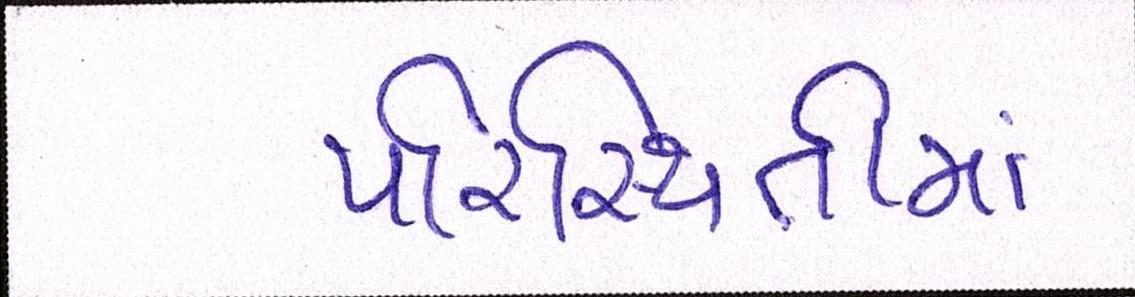 પરિસ્થિતીમાં